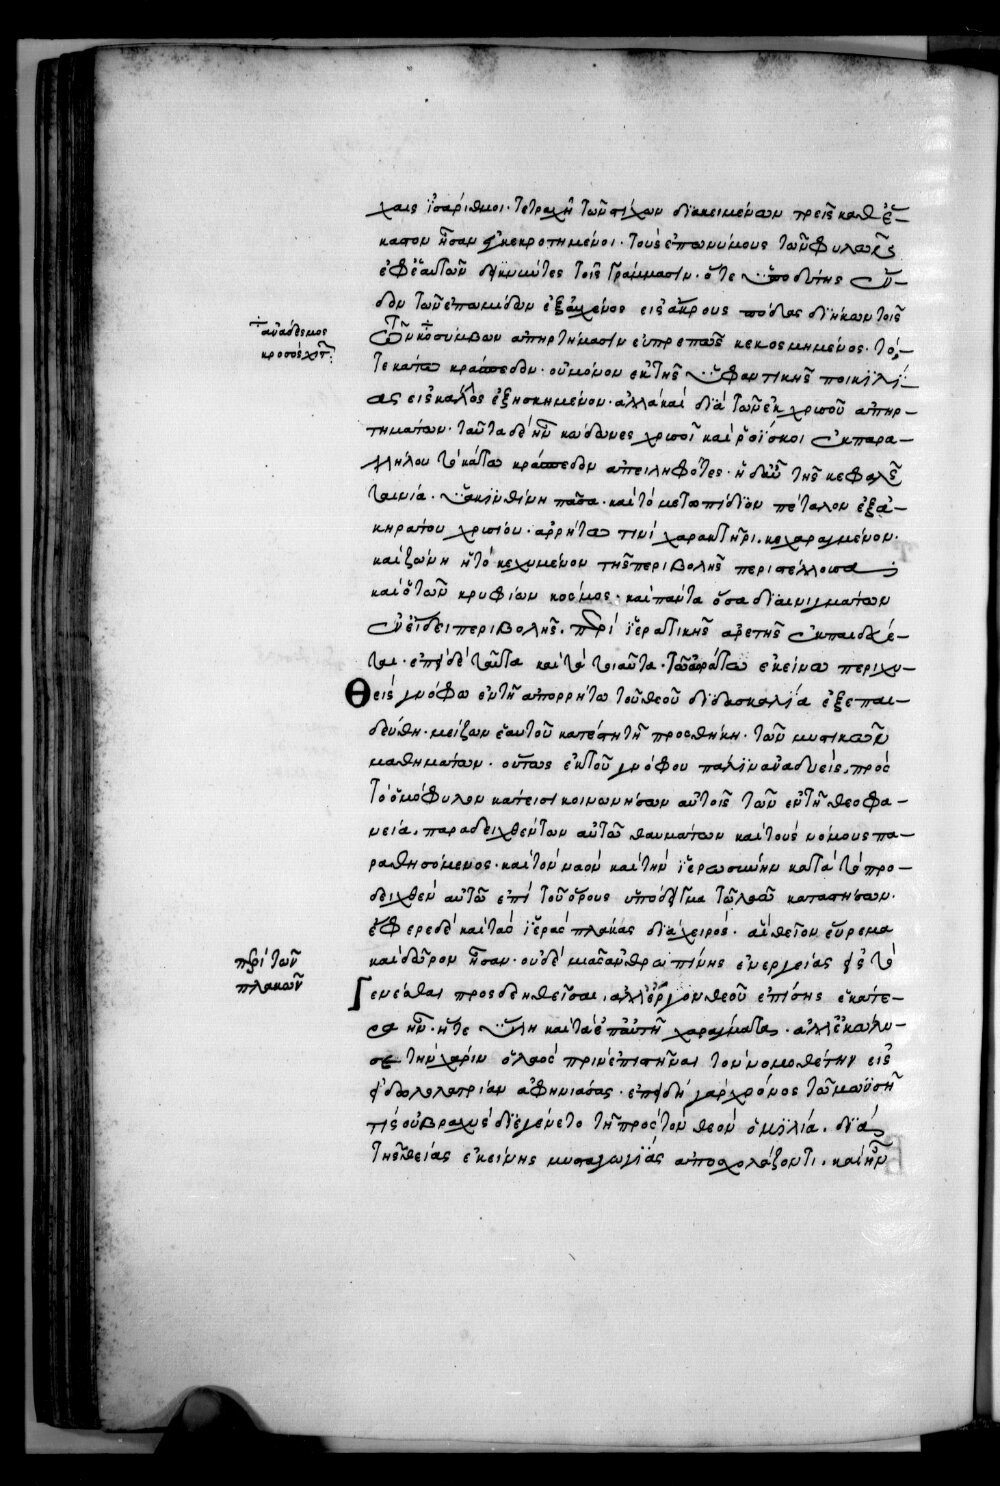 χαις ἰσάριθμοι· τετραχῆ τῶν στίχων διακειμένων τρεῖς καθ ἕ-
καστον ἦσαν συγκεκροτημένοι· τοὺς ἐπωνύμους τῶν φυλῶν
ἐφ ἑαυτῶν δεικνύντες τοῖς γράμμασιν· ὅτε ὑποδύτης
δὴν τῶν ἐπωμίδων ἐξαμμένος εἰς ἄκρους πόδας διήκων τοῖς
τῶν κοσύμβων ἀπηρτήμασιν εὐπρεπῶς κεκοσμημένος· τό,
τε κάτω κράσπεδον· οὐ μόνον ἐκ τῆς ὑφαντικῆς ποικιλί-
ας εἰς κάλλος ἐξησκημένον· ἀλλὰ καὶ διὰ τῶν ἐκ χρυσοῦ ἀπηρ-
τημάτων· ταῦτα δὲ ἦν κώδωνες χρυσοῖ καὶ ῥοΐσκοι ἐκ παρα-
λλήλου τὸ κάτω κράσπεδον ἀπειληφότες· ἡ δ αὖ τῆς κεφαλῆς
ταινία· ὑακινθίνη πᾶσα· καὶ τὸ μετωπίδιον πέταλον ἐξ ἀ-
κηράτου χρυσίου· ἀρρήτω τινὶ χαρακτῆρι κεχαραγμένον·
καὶ ζώνη ἡ τὸ κεχυμένον τῆς περιβολῆς περιστέλλουσα
καὶ ὁ τῶν κρυφίων κόσμος· καὶ πάντα ὅσα δι αἰνιγμάτων
ἐν εἴδει περιβολῆς· περὶ ἱερατικῆς ἀρετῆς ἐκπαιδεύε-
ται· ἐπεὶ δὲ ταῦτα καὶ τὰ τοιαῦτα· τῶ ἀοράτω ἐκείνω περιχυ-
Θεὶς γνόφω ἐν τῆ ἀπορρήτω τοῦ θεοῦ διδασκαλία ἐξεπαι-
δεύθη· μείζων ἑαυτοῦ κατέστη τῆ προσθήκη· τῶν μυστικῶν
μαθημάτων· οὕτως ἐκ τοῦ γνόφου πάλιν ἀναδυεὶς πρὸς
τὸ ὁμόφυλον κάτεισι κοινωνήσων αὐτοῖς τῶν ἐν τῆ θεοφα-
νεία· παραδειχθέντων αὐτῶ θαυμάτων καὶ τοὺς νόμους πα-
ραθησόμενος· καὶ τὸν ναὸν καὶ τὴν ἱερωσύνην κατὰ τὸ προ-
δειχθὲν αὐτῶ ἐπὶ τοῦ ὄρους ὑπόδειγμα τῶ λαῶ καταστήσων·
ἔφερε δὲ καὶ τὰς ἱερὰς πλάκας διὰ χειρός· αἳ θεῖον εὕρεμα
καὶ δῶρον ἦσαν· οὐδὲ μιᾶς ἀνθρωπίνης ἐνεργείας εἰς τὸ
γενέσθαι προσδεηθεῖσαι, ἀλλ ἔργον θεοῦ ἐπίσης ἑκάτε-
ρα ἦν· ἥ τε ὕλη καὶ τὰ ἐπ αὐτῆ χαράγματα· ἀλλ ἐκώλυ-
σε τὴν χάριν ὁ λαὸς πρὶν ἐπιστῆναι τὸν νομοθέτην εἰς
εἰδωλολατρίαν ἀφηνιάσας· ἐπειδὴ γὰρ χρόνος τῶ μωϋσῆ
τὶς οὐ βραχὺς διεγένετο τῆ πρὸς τὸν θεὸν ὁμιλία· διὰ
τῆς θείας ἐκείνης μυσταγωγίας ἀποσχολάζοντι· καὶ ἦν
ἀνάδεσμος
κροσὸς χιτ
περὶ τῶν
πλακῶν